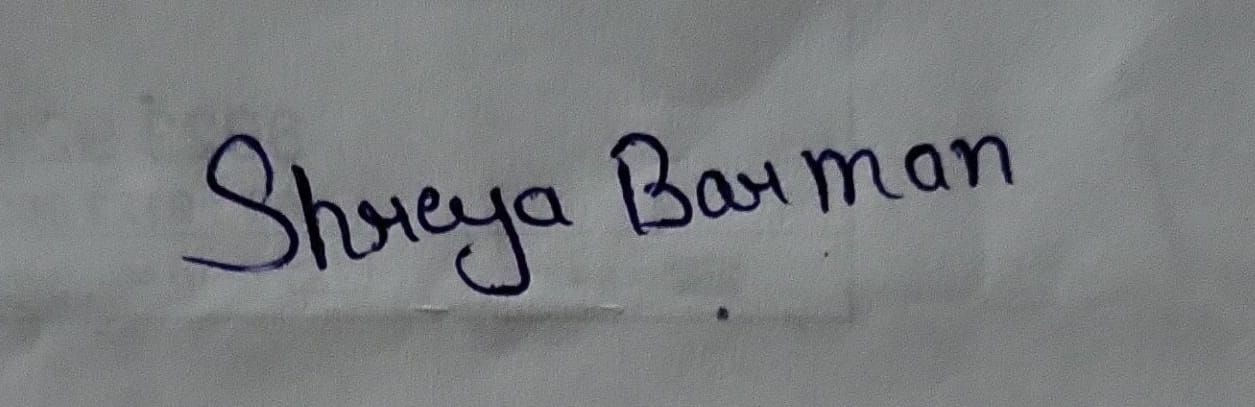 Shreya Barman